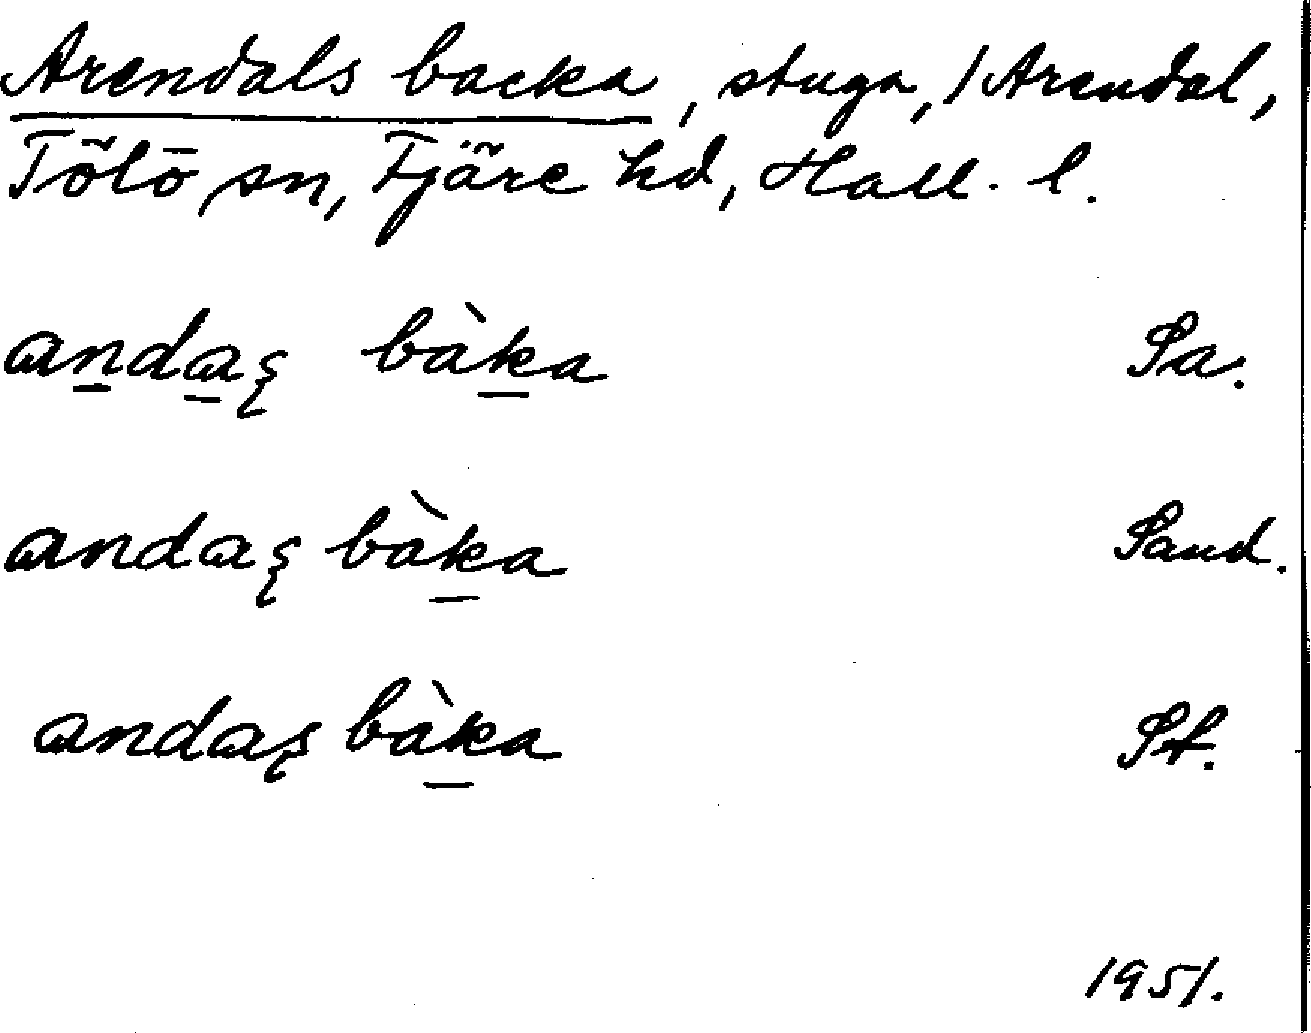 Arendals backa, stuga, / Arendal,
Tölö sn, Fjäre hd, Hall. l.
andaş bàka Sa.
andaş bàka Sand.
andaş bàka St.
1951.